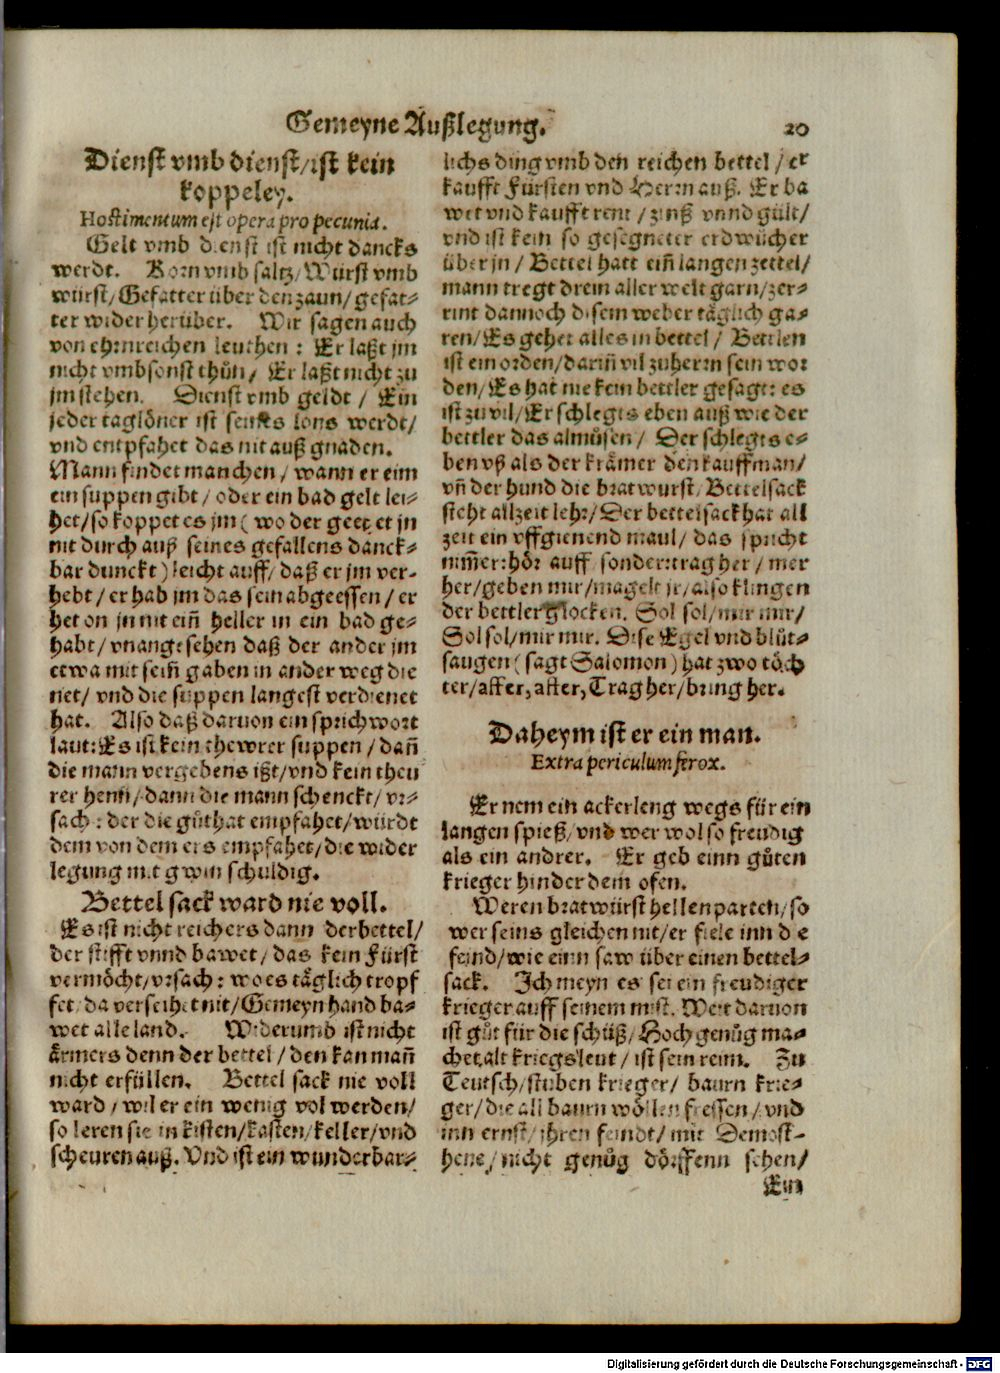 Gemeyne Außlegung. 20
Dienst vmb dienst/ist kein
koppeley.
Hostimentum est opera pro pecunia.
Gelt vmb dienst ist nicht dancks
werdt. Korn vmb saltz/Wurst vmb
wurst/Gefatter über den zaun/gefat⸗
ter wider herüber. Wir sagen auch
von ehrnreichen leuthen: Er laßt jm
nicht vmbsonst thůn/ Er laßt nicht zu
jm stehen. Dienst vmb geldt/ Ein
jeder taglöner ist seines lons werdt/
vnd entpfahet das nit auß gnaden.
Mann findet manchen/wann er eim
ein suppen gibt/oder ein bad gelt lei⸗
het/so koppet es jm(wo der geetzet jn
nit durch auß seines gefallens danck⸗
bar dunckt)leicht auff/daß er jm ver⸗
hebt/er hab jm das sein abgeessen/er
het on jn nit ein̄ heller in ein bad ge⸗
habt/vnangesehen daß der ander jm
etwa mit sein̄ gaben in ander weg die
net/vnd die suppen langest verdienet
hat. Also daß daruon ein sprichwort
laut:Es ist kein thewrer suppen/dañ
die mann vergebens ißt/vnd kein theu
rer henn/dann die mann schenckt/vr⸗
sach:der die gůthat empfahet/würdt
dem von dem ers empfahet/die wider
legung mit gwin schuldig.
Bettel sack ward nie voll.
Es ist nicht reichers dann der bettel/
der stifft vnnd bawet/das kein Fürst
vermöcht/vrsach: wo es täglich tropf
fet/da verseihet nit/Gemeyn hand ba⸗
wet alle land. Widerumb ist nicht
ärmers denn der bettel/den kan mañ
nicht erfüllen. Bettel sack nie voll
ward/wil er ein wenig vol werden/
so leren sie in kisten/kasten/keller/vnd
scheuren auß. Vnd ist ein wunderbar⸗
lichs ding vmb den reichen bettel/er
kaufft Fürsten vnd Herrn auß. Er ba
wet vnd kaufft rent/zinß vnnd gült/
vnd ist kein so gesegneter erdwůcher
über jn/Bettel hatt ein̄ langen zettel/
mann tregt drein aller welt garn/zer⸗
rint dannoch disem weber täglich ga⸗
ren/Es gehet alles in bettel/ Bettlen
ist ein orden/darin̄ vil zu herrn sein wor
den/Es hat nie kein bettler gesagt: es
ist zu vil/Er schlegts eben auß wie der
bettler das almůsen/ Der schlegts e⸗
ben vß als der krämer den kauffman/
vñ der hund die bratwurst/Bettelsack
steht allzeit lehr/Der bettelsack hat all
zeit ein vffgienend maul/das spricht
nim̄er:hör auff sonder:trag her/mer
her/geben mir/mag elt jr/also klingen
der bettler glocken. Sol sol/mir mir/
Sol sol/mir mir. Dise Egel vnd blůt⸗
saugen(sagt Salomon)hat zwo töch
ter/affer,affer,Trag her/bring her.
Daheym ist er ein man.
Extra periculum ferox.
Er nem ein ackerleng wegs für ein
langen spieß/vnd wer wol so freudig
als ein andrer. Er geb einn gůten
krieger hinder dem ofen.
Weren bratwürst hellenparten/so
wer seins gleichen nit/er fiele inn die
feind/wie einn saw über einen bettel⸗
sack. Ich meyn es sei ein freudiger
krieger auff seinem mist. Weit daruon
ist gůt für die schüß/Hoch genůg ma⸗
chet alt kriegsleut/ist sein reim. Zu
Teutsch/stuben krieger/ baurn krie⸗
ger/die all baurn wöllen fressen/vnd
inn ernst/ihren feindt/mit Demost⸗
hene/nicht genůg dörffenn sehen/
Ein
Digitalisierung gefördert durch die Deutsche Forschungsgemeinschaft - DFG